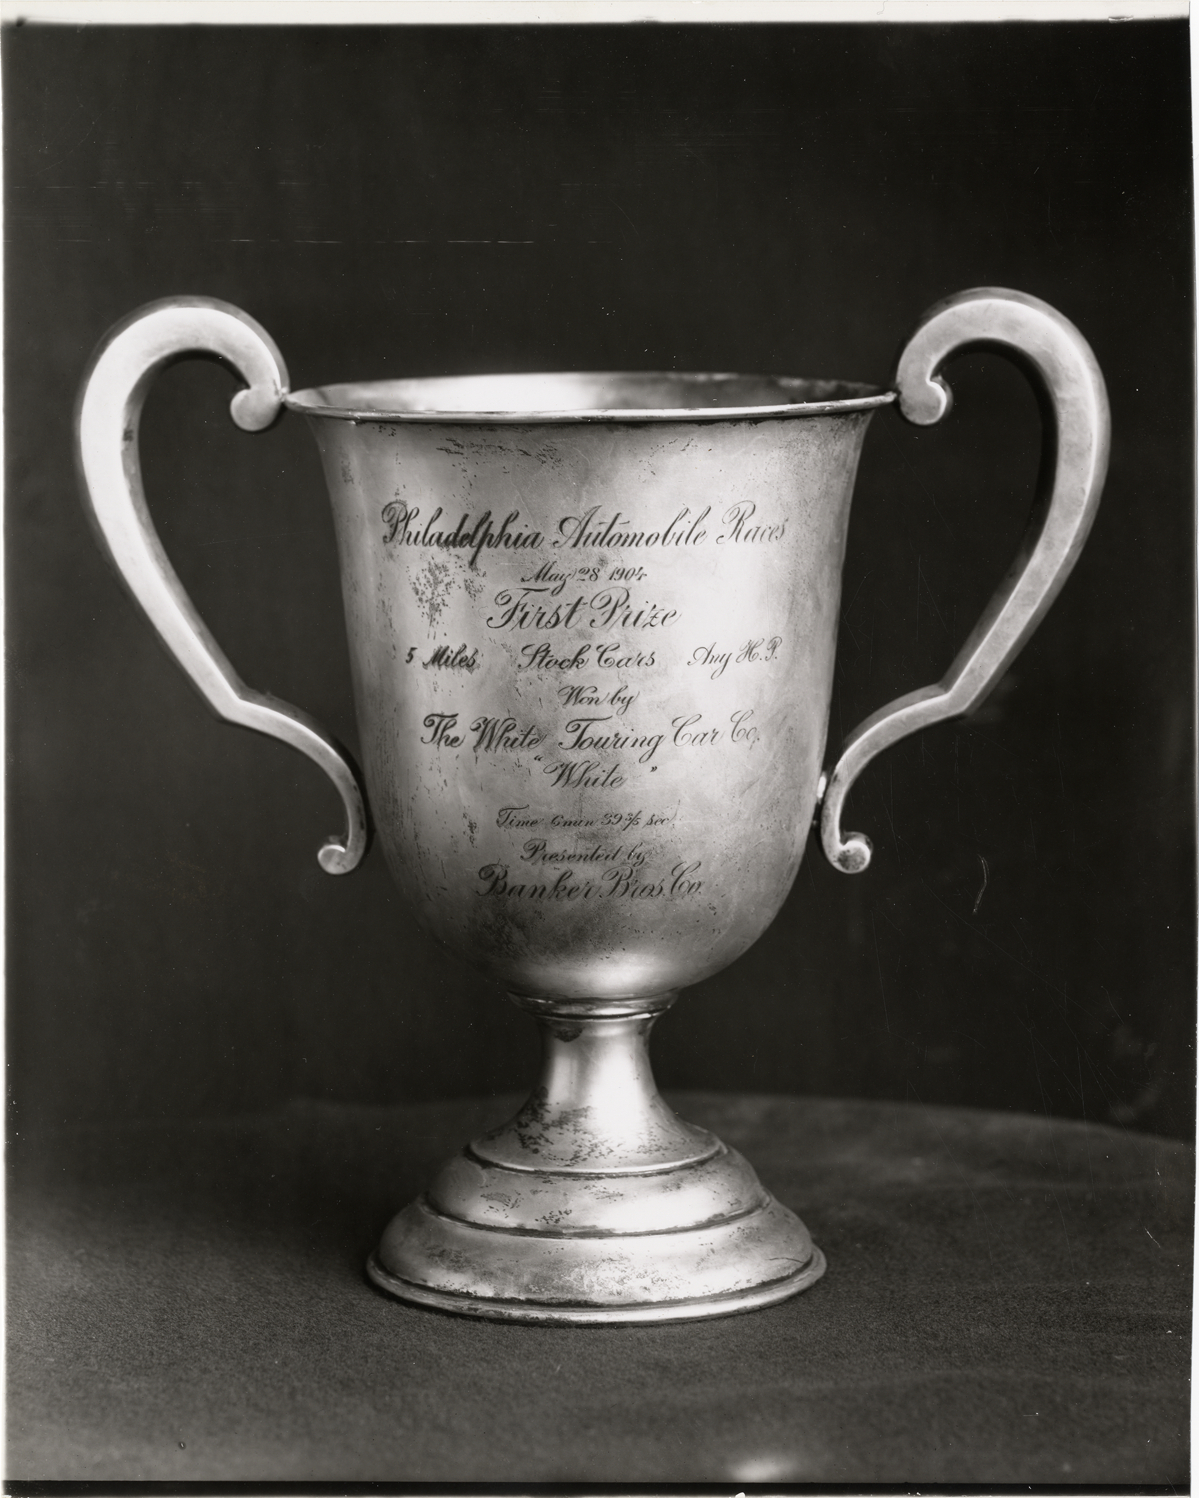 Philadelphia Automobile Races
May 28 1904
First Prize
5 Miles Stock Cars Any H.P.
Won by
The White Touring Car Co.
"White"
Time 6 min 39 3/5 sec.
Presented by
Banker Bros. Co.